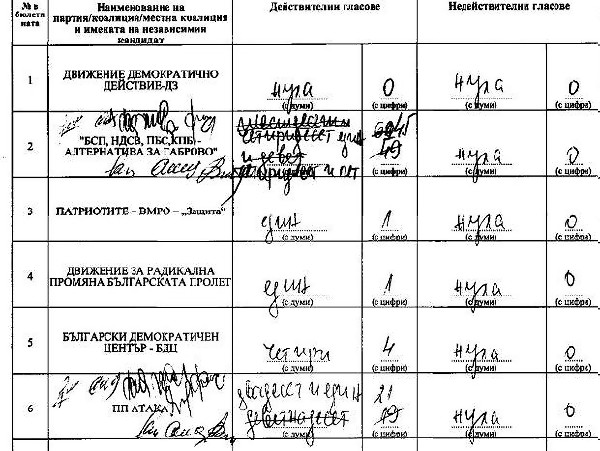 № в бюлетината
Наименование на
партия/коалиция/местна коалиция
и имената на независимия
кандидат
Действителни гласове
Недействителни гласове
1
ДВИЖЕНИЕ ДЕМОКРАТИЧНО
ДЕЙСТВИЕ-ДЗ
нула
(с думи)
0
(с цифри)
нула
(с думи)
0
(с цифри)
2
"БСП, НДСВ, ПБС, КПБ -
АЛТЕРНАТИВА ЗА ГАБРОВО"
четиридесет
и девет
четиридесет и пет
45
49
(с цифри)
нула
(с думи)
0
(с цифри)
3
ПАТРИОТИТЕ - ВМРО – „Защита“
един
(с думи)
1
(с цифри)
нула
(с думи)
0
(с цифри)
4
ДВИЖЕНИЕ ЗА РАДИКАЛНА
ПРОМЯНА БЪЛГАРСКАТА ПРОЛЕТ
един
(с думи)
1
(с цифри)
нула
(с думи)
0
(с цифри)
5
БЪЛГАРСКИ ДЕМОКРАТИЧЕН
ЦЕНТЪР - БДЦ
четири
(с думи)
4
(с цифри)
нула
(с думи)
0
(с цифри)
6
ПП АТАКА
двадесет и един
деветнадесет
(с думи)
21
19
(с цифри)
нула
(с думи)
0
(с цифри)